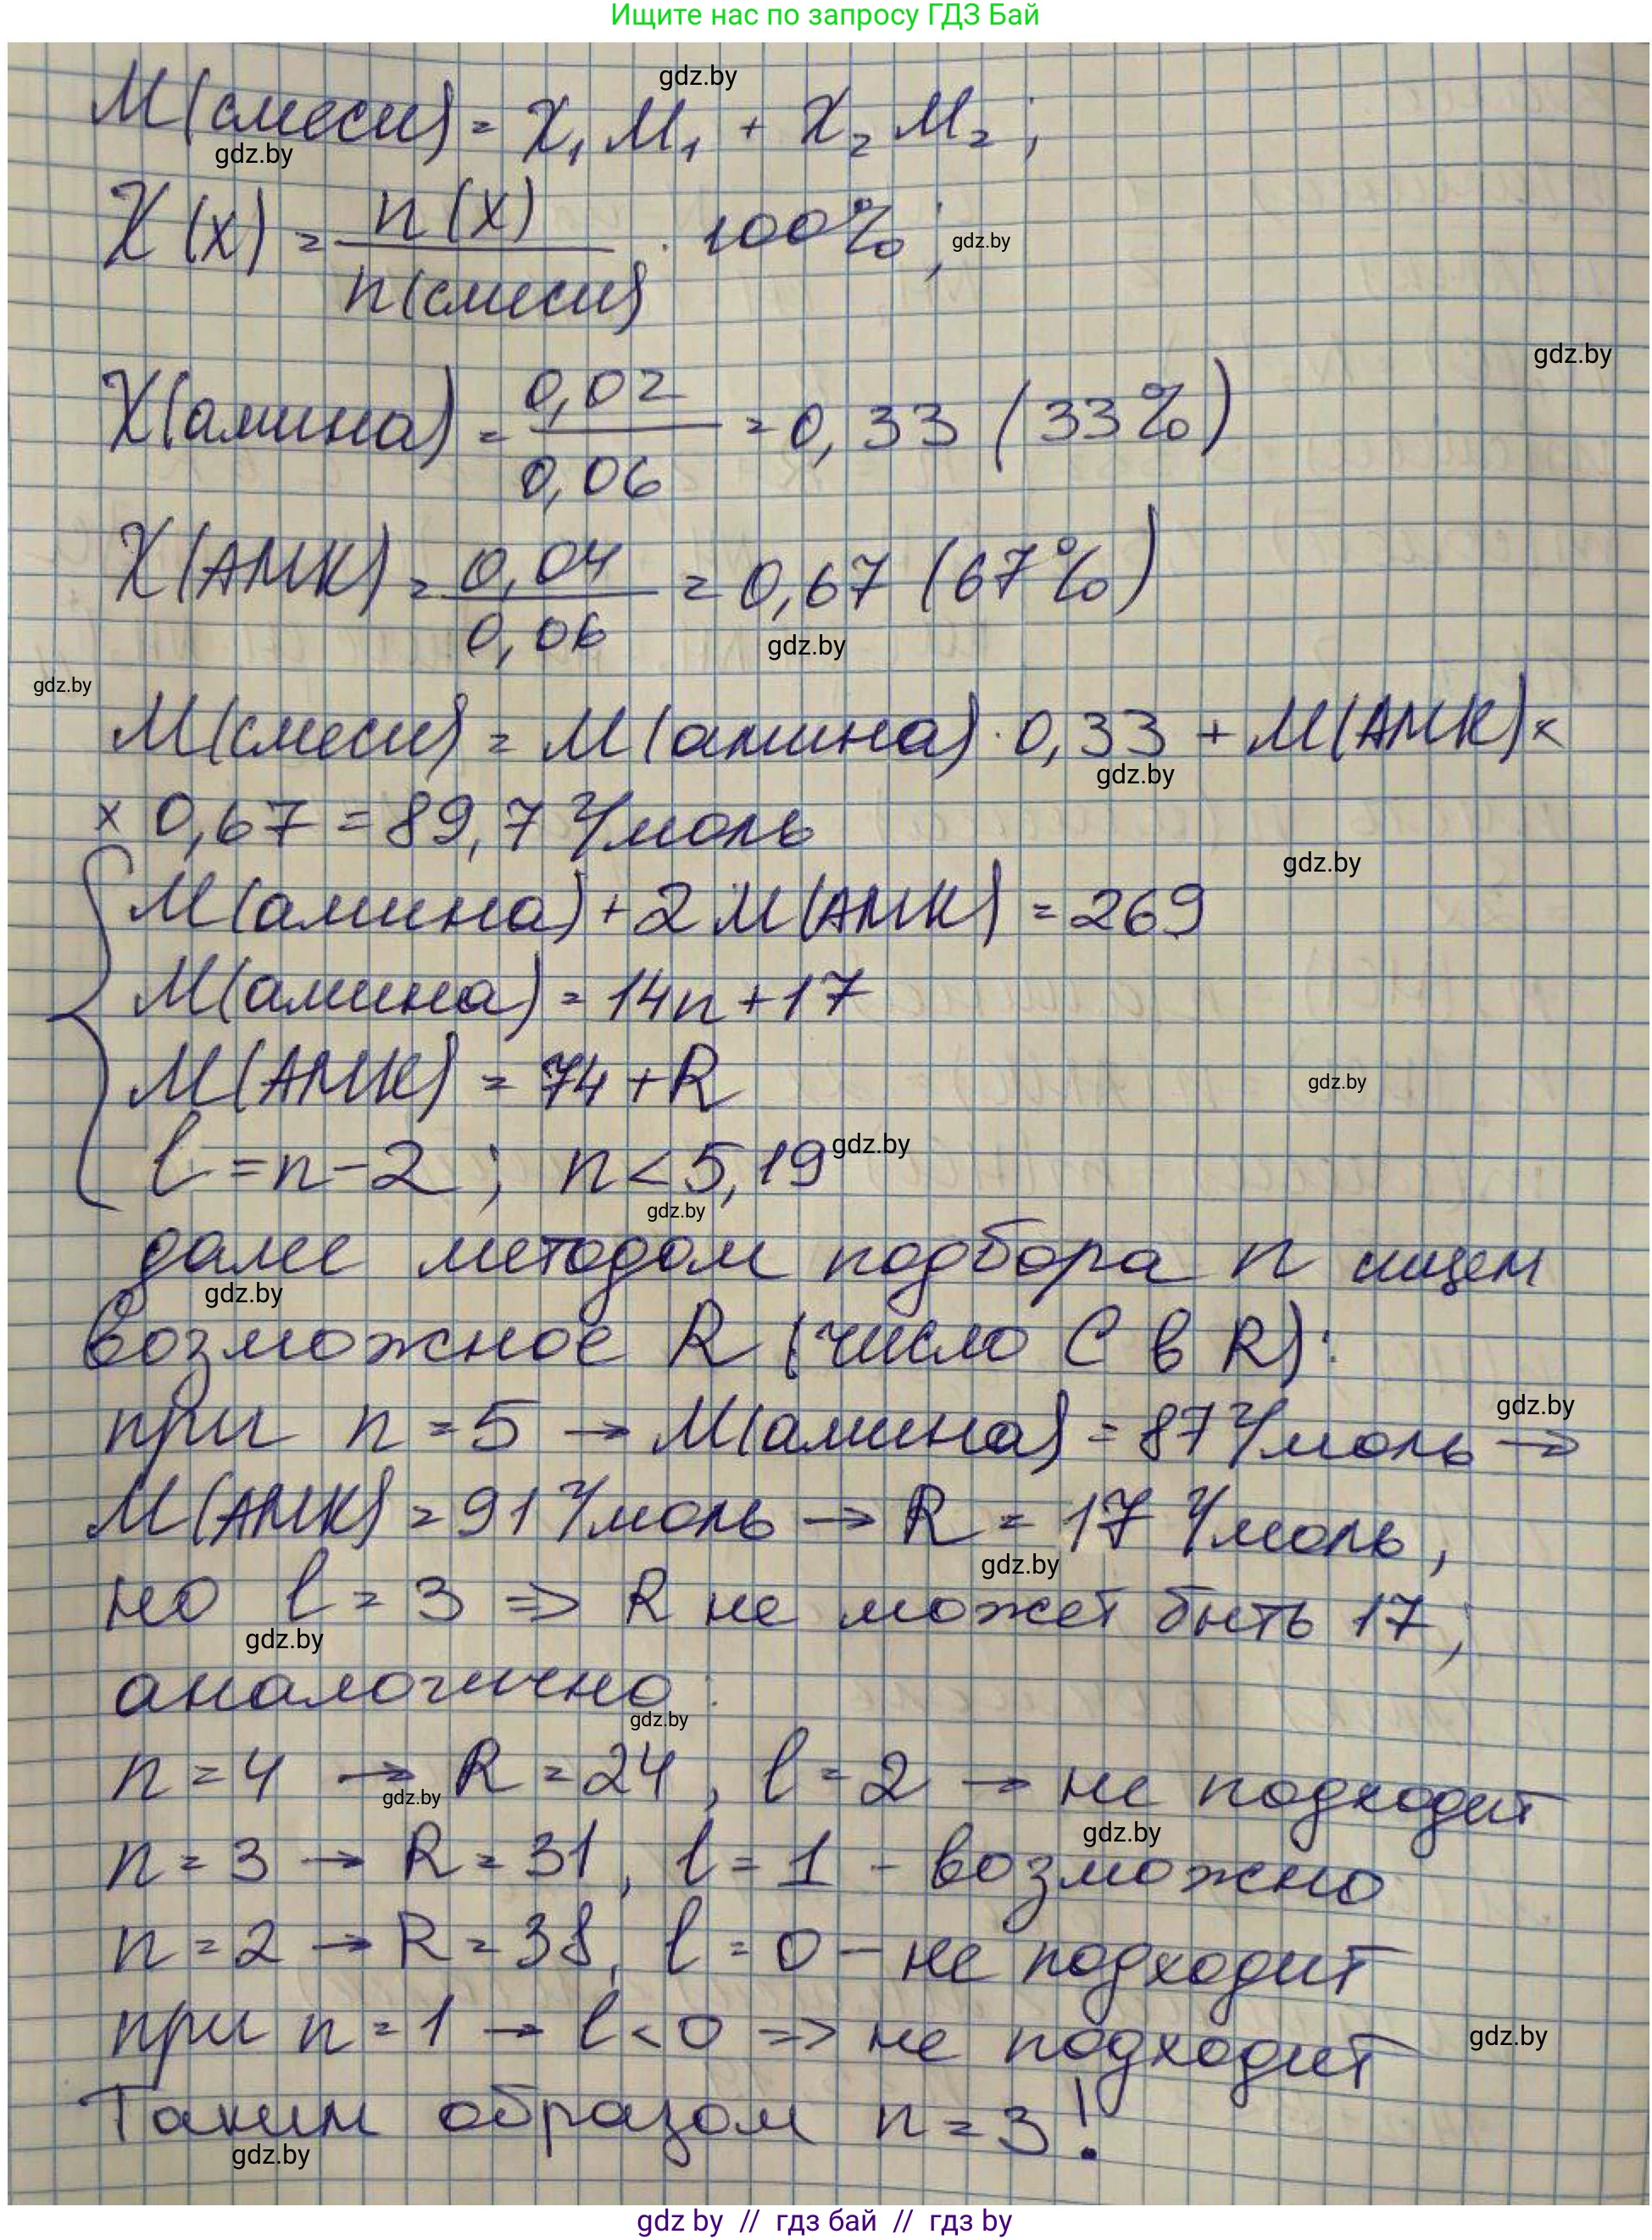 Ищите нас по запросу ГДЗ Бай
gdz.by
M(смеси) = χ₁M₁ + χ₂M₂;
gdz.by
χ(x) = n(x) / n(смеси) · 100%;
gdz.by
gdz.by
χ(амина) = 0,02 / 0,06 = 0,33 (33%)
χ(АМК) = 0,04 / 0,06 = 0,67 (67%)
gdz.by
gdz.by
M(смеси) = M(амина) · 0,33 + M(АМК) ×
gdz.by
× 0,67 = 89,7 г/моль
gdz.by
M(амина) + 2M(АМК) = 269
M(амина) = 14n + 17
M(АМК) = 74 + R
gdz.by
l = n - 2; n < 5,19
gdz.by
gdz.by
далее методом подбора n ищем
gdz.by
возможное R (число C в R):
gdz.by
при n = 5 → M(амина) = 87 г/моль →
M(АМК) = 91 г/моль → R = 17 г/моль,
gdz.by
но l = 3 ⇒ R не может быть 17;
gdz.by
аналогично:
gdz.by
n = 4 → R = 24, l = 2 → не подходит
gdz.by
gdz.by
n = 3 → R = 31, l = 1 - возможно
n = 2 → R = 38, l = 0 - не подходит
при n = 1 → l < 0 ⇒ не подходит
gdz.by
Таким образом n = 3!
gdz.by
gdz by // гдз бай // гдз by